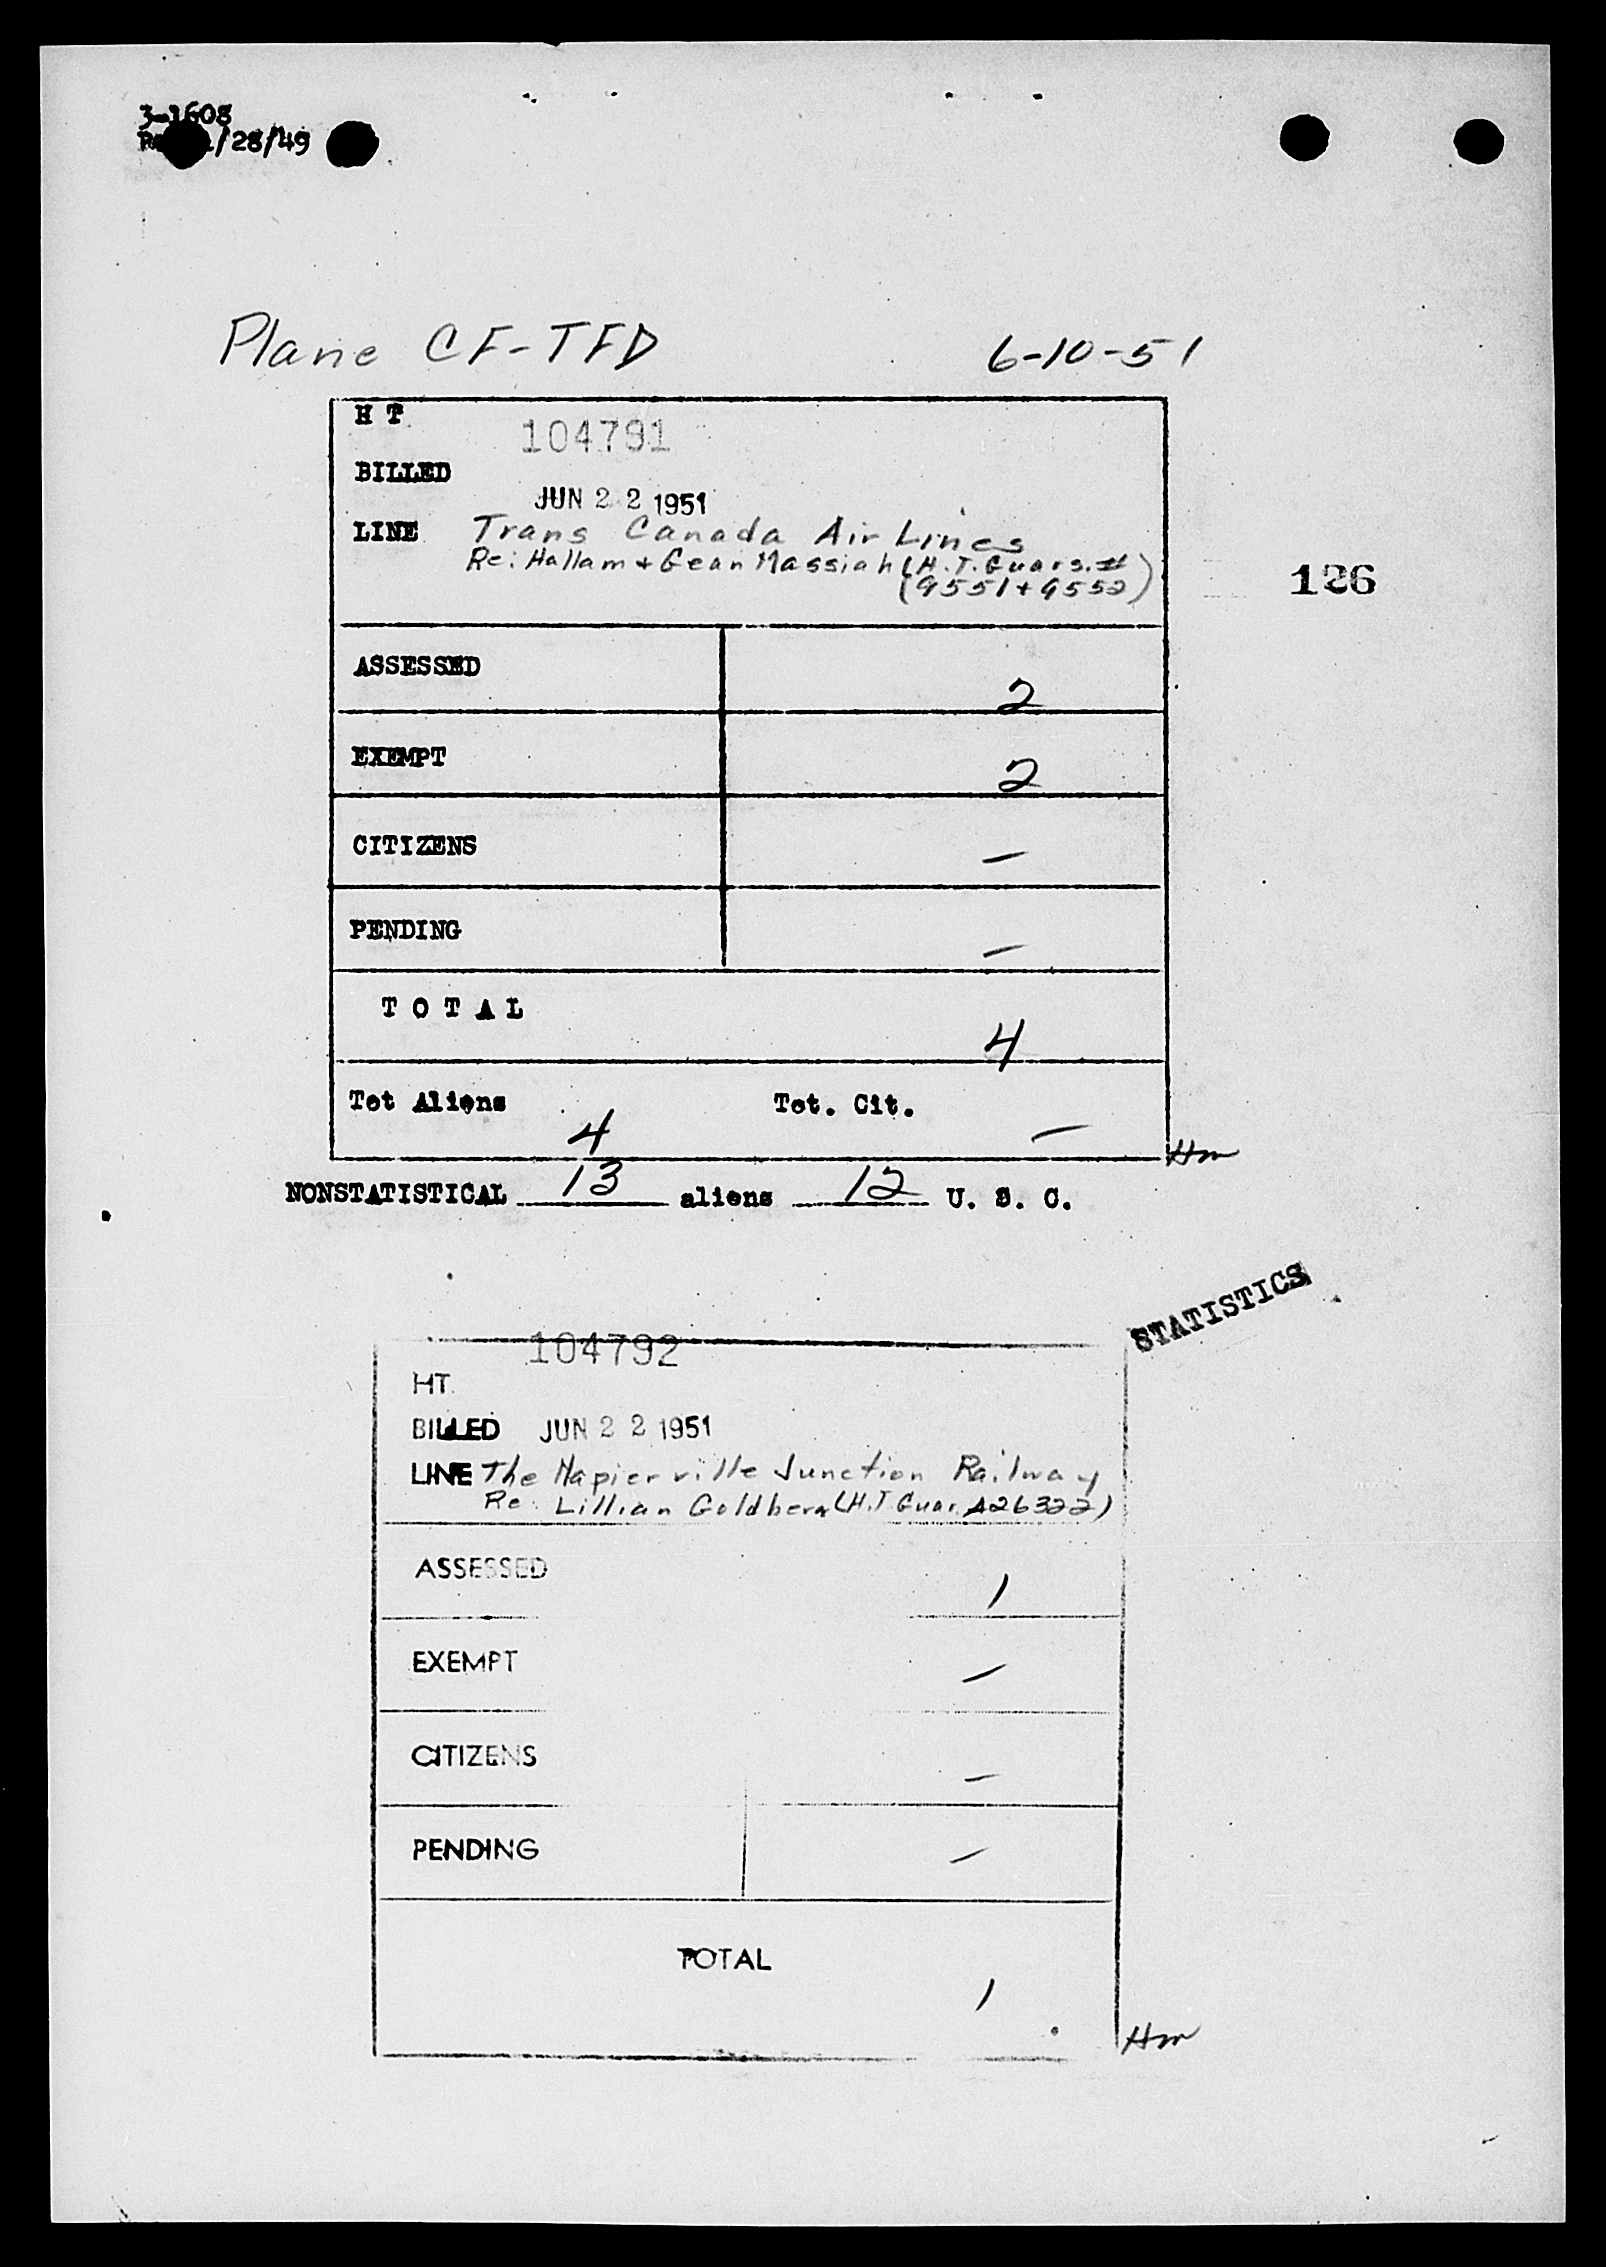 3-1608
/28/49
Plane CF-TFD 6-10-51
H T
104791
BILLED
JUN 22 1951
LINE Trans Canada Air Lines
Re: Hallam + Gean Massiah (H.T. Guars. #)
(9551 + 9552)
126
ASSESSED 2
EXEMPT 2
CITIZENS —
PENDING —
T O T A L 4
Tot Aliens 4 Tot. Cit. —
Hm
NONSTATISTICAL 13 aliens 12 U. S. C.
STATISTICS
104792
HT.
BILLED JUN 22 1951
LINE The Napierville Junction Railway
Re: Lillian Goldberg (H.T Guar. A26322)
ASSESSED 1
EXEMPT —
CITIZENS —
PENDING —
TOTAL
1
Hm